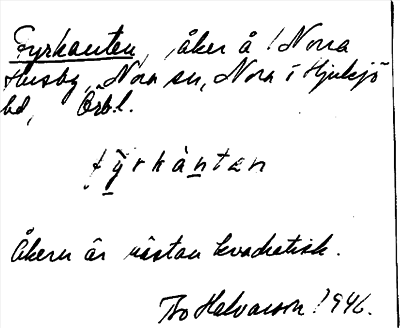 Fyrkanten, åker å Norra
Husby, Nora sn, Nora i Hjulsjö
bd, Örb.l.
fyrkànten
Åkern är nästan kvadratisk.
Bo Halvarson 1946.